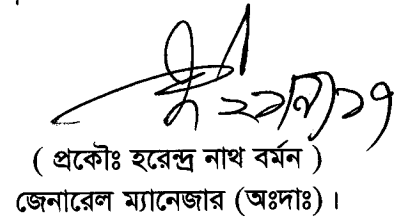 ( প্রকৌঃ হরেন্দ্র নাথ বর্মন )
জেনারেল ম্যানেজার (অঃদাঃ) ।